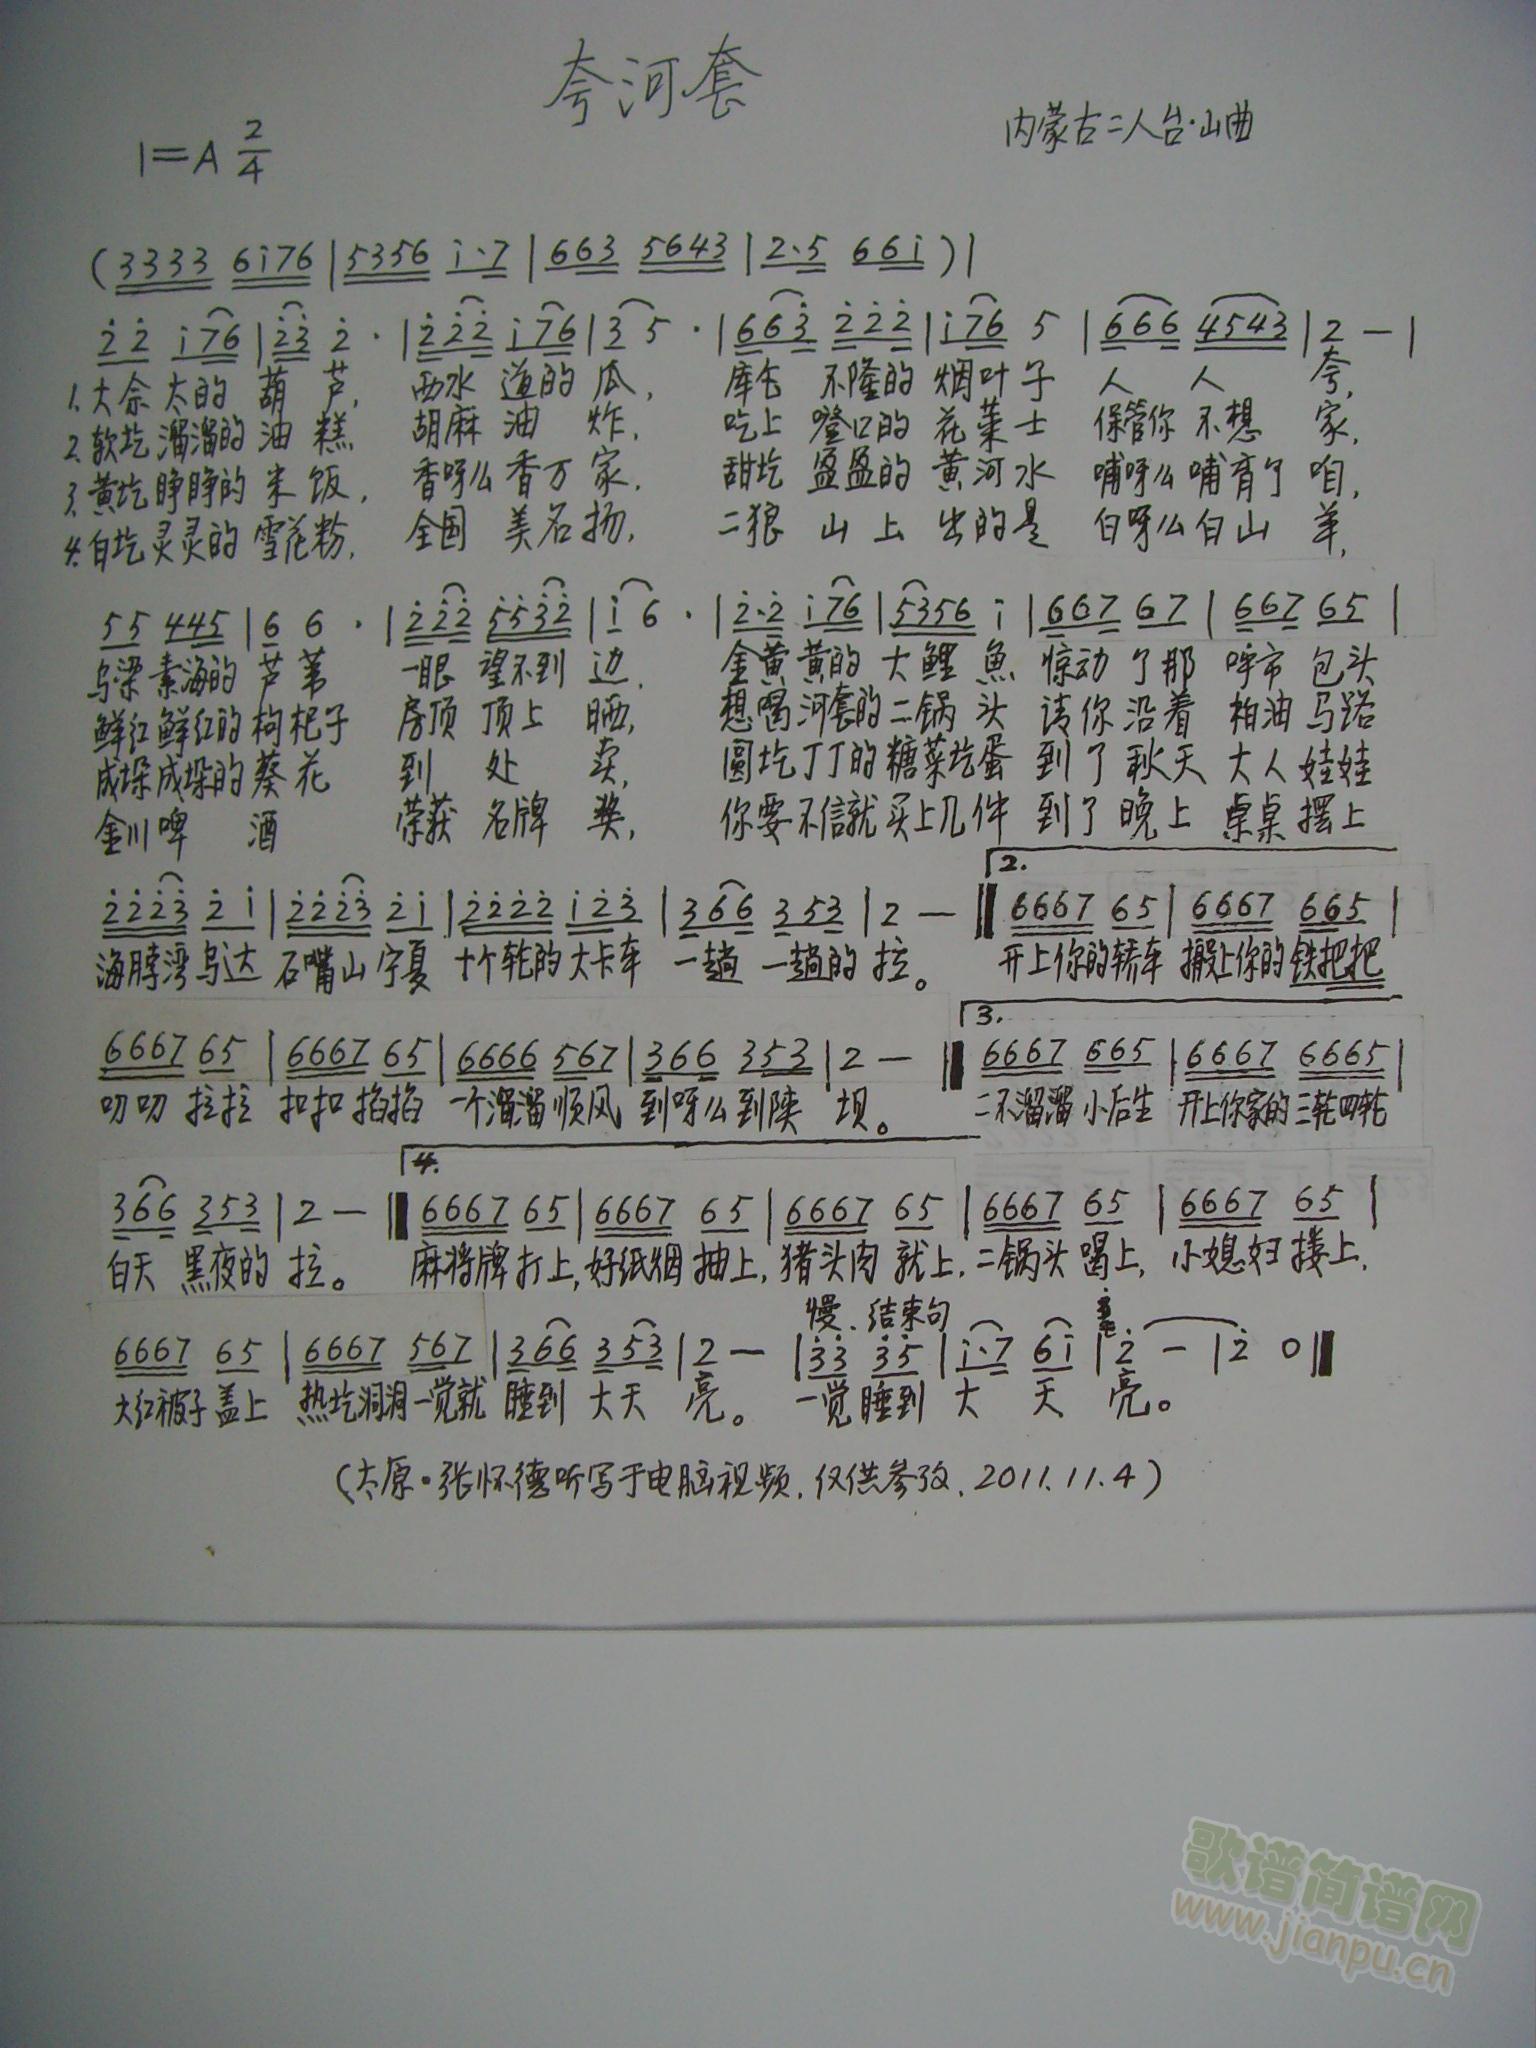 夸河套
内蒙古二人台·山曲
1=A 2/4
(3333 6i76 | 5356 i·7 | 663 5643 | 2·5 66i )|
2̇2̇ i76 | 2̇3̇ 2̇· | 2̇2̇2̇ i76 | 3 5· | 663̇ 2̇2̇2̇ | i76 5 | 666 4543 | 2 — |
1.大佘太的 葫芦, 西水道的瓜, 库仑不隆的烟叶子 人人夸,
2.软圪溜溜的油糕 胡麻油炸, 吃上噔口的花莱士 保管你不想家,
3.黄圪睁睁的米饭, 香呀么香万家, 甜圪盈盈的黄河水 哺呀么哺育了咱,
4.白圪灵灵的雪花粉, 全国美名扬, 二狼山上出的是 白呀么白山羊,
55 445 | 6 6· | 2̇2̇2̇ 5̇5̇3̇2̇ | i 6· | 2̇·2̇ i76 | 5356 i | 667 67 | 667 65 |
乌梁素海的芦苇 一眼望不到边, 金黄黄的大鲤魚 惊动了那呼市包头
鲜红鲜红的枸杞子 房顶顶上晒, 想喝河套的二锅头 请你沿着柏油马路
成垛成垛的葵花 到处卖, 圆圪丁丁的糖菜圪蛋 到了秋天大人娃娃
金川啤酒 荣获名牌奖, 你要不信就买上几件 到了晚上桌桌摆上
2.
2̇2̇2̇3̇ 2̇i | 2̇2̇2̇3̇ 2̇i | 2̇2̇2̇2̇ i2̇3̇ | 366 353 | 2 — ‖ 6667 65 | 6667 665 |
海脖湾乌达 石嘴山宁夏 十个轮的大卡车 一趟一趟的拉。 开上你的轿车 搬上你的铁把把
3.
6667 65 | 6667 65 | 6666 567 | 366 353 | 2 — ‖ 6667 665 | 6667 6665 |
叨叨拉拉 扣扣掐掐 一个溜溜顺风 到呀么到陕坝。 二不溜溜小后生 开上你家的三轮四轮
4.
366 353 | 2 — ‖ 6667 65 | 6667 65 | 6667 65 | 6667 65 | 6667 65 |
白天黑夜的拉。 麻将牌打上, 好纸烟抽上, 猪头肉就上, 二锅头喝上, 小媳妇搂上,
慢、结束句
6667 65 | 6667 567 | 366 353 | 2 — | 3̇3̇ 3̇5̇ | i·7 6i | 2̇ — | 2̇ 0 ‖
大红被子盖上 热圪洞洞一觉就 睡到大天亮。 一觉睡到大天亮。
(太原·张怀德听写于电脑视频, 仅供参攷, 2011.11.4)
歌谱简谱网
www.jianpu.cn